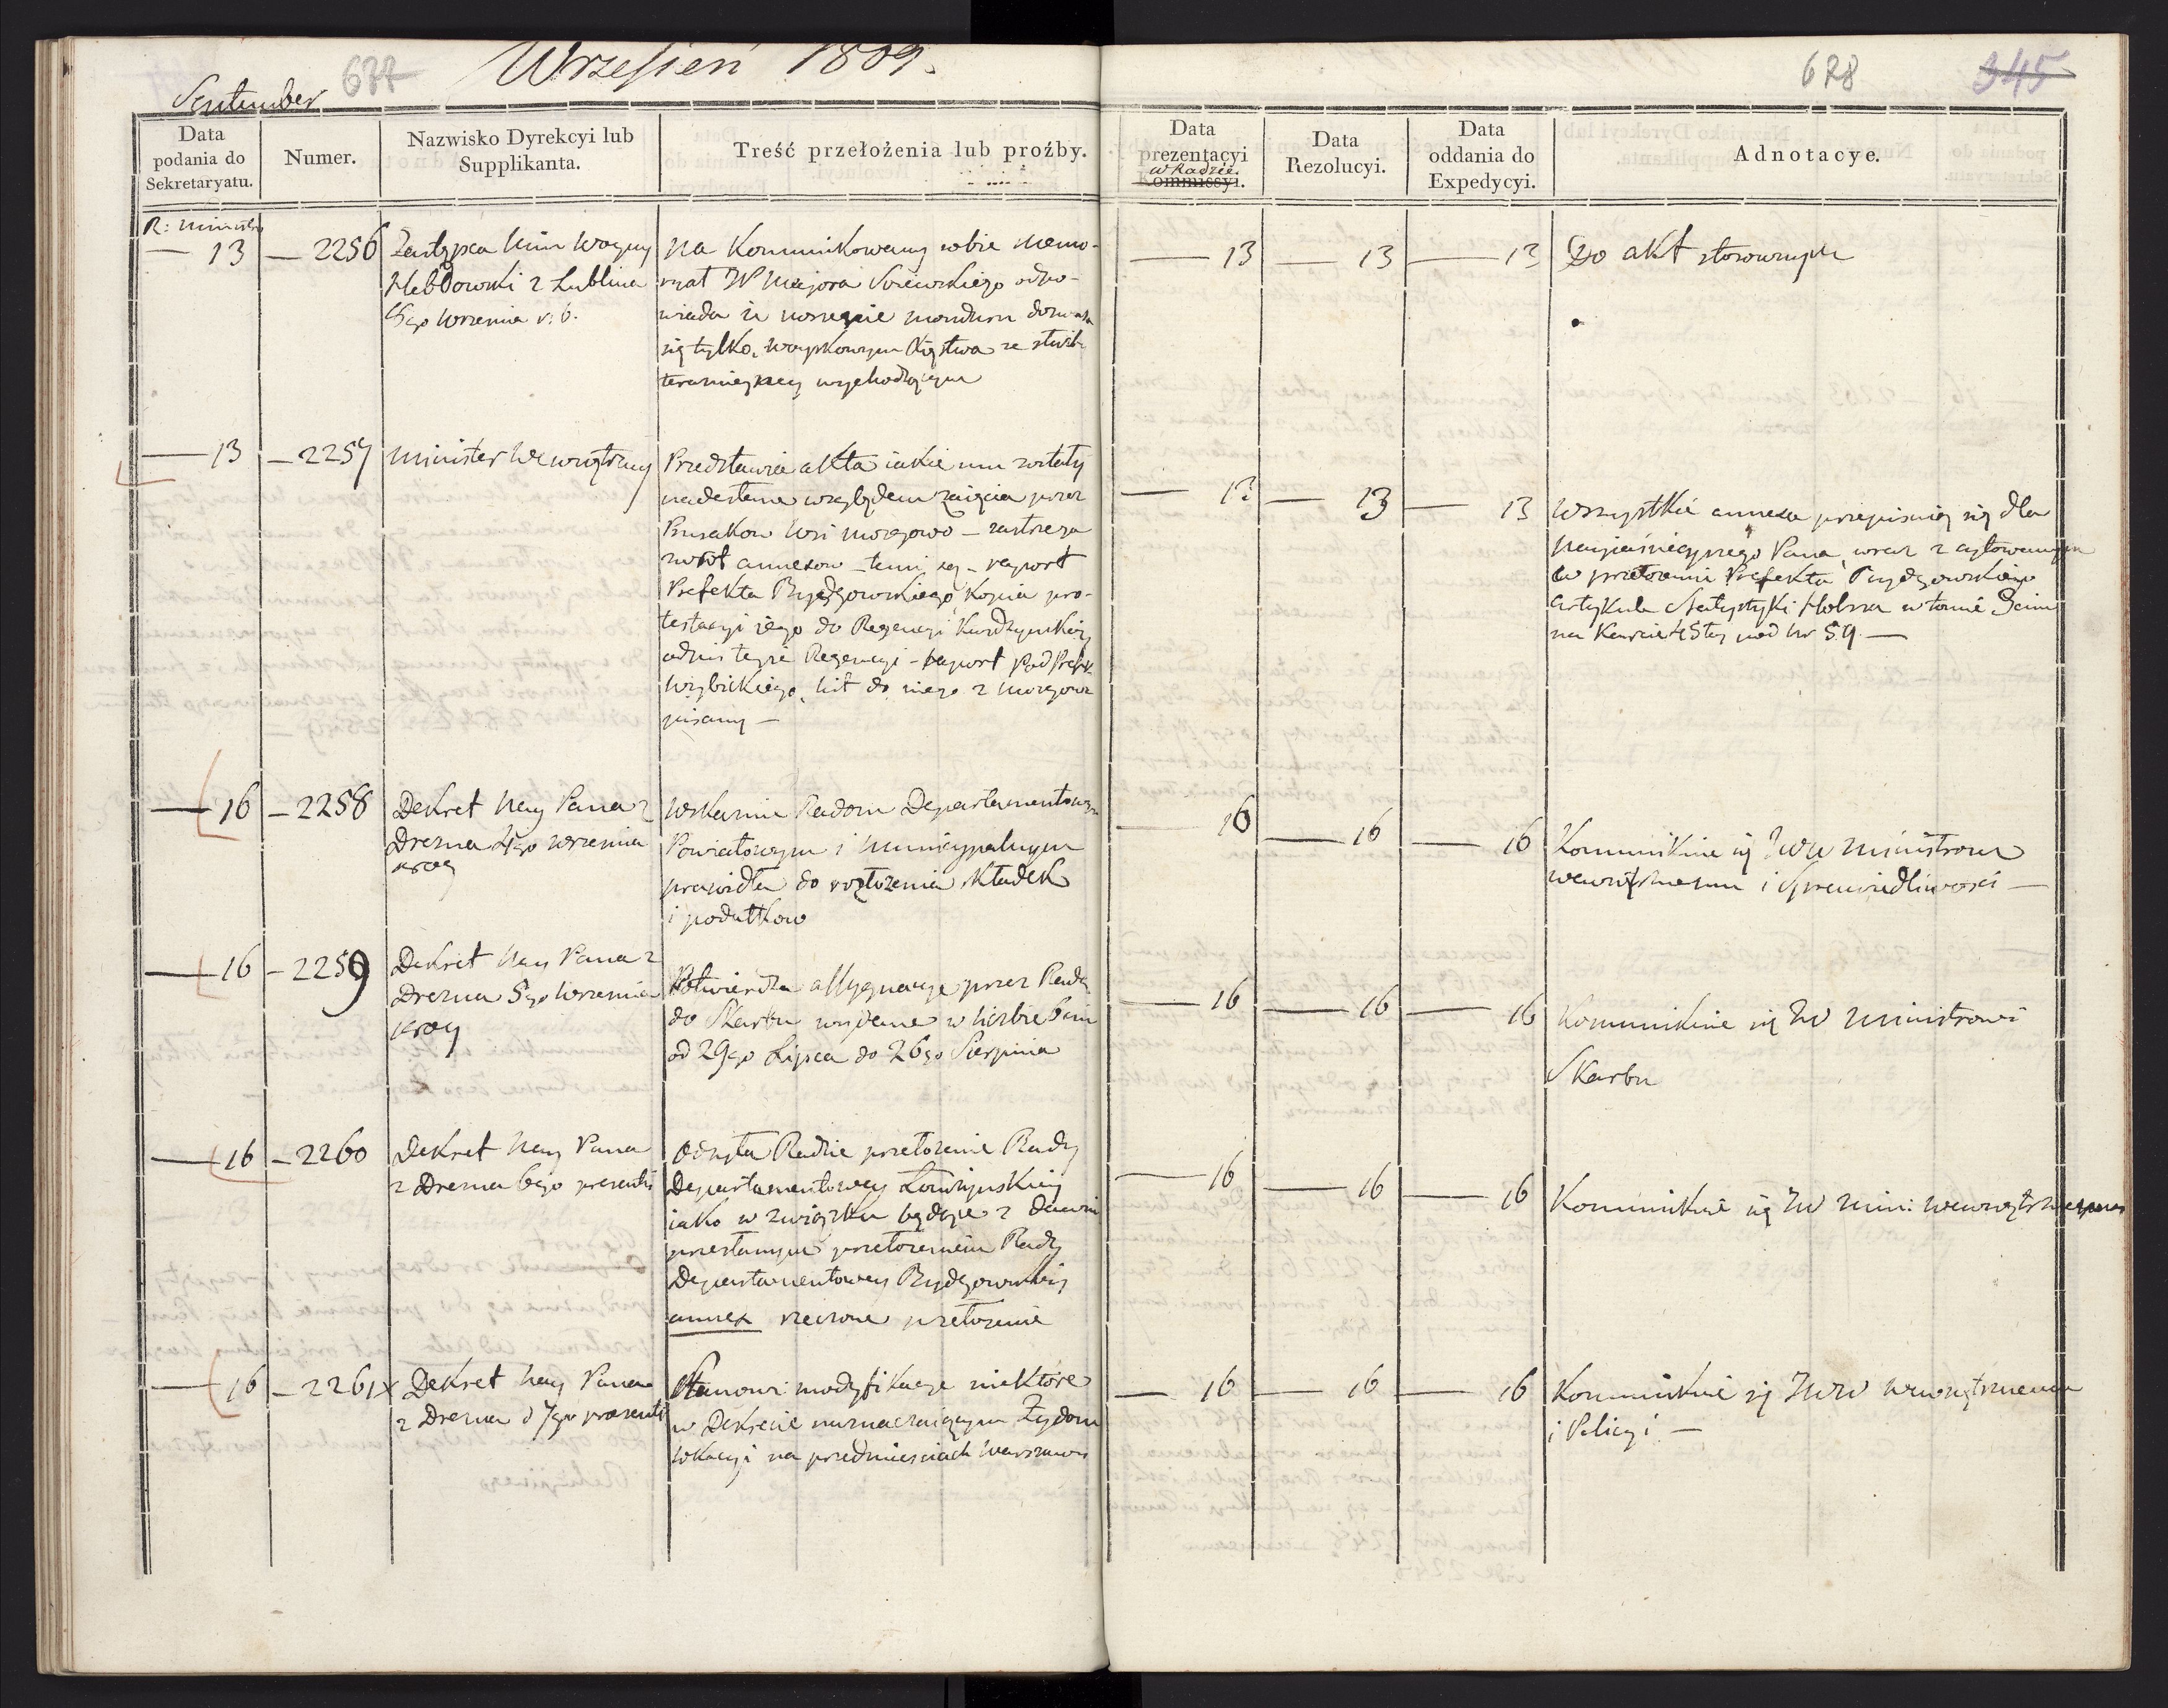 Wrzesień 1809.
637
678
345
September
Data podania do Sekretaryatu.
Numer.
Nazwisko Dyrekcyi lub Supplikanta.
Treść przełożenia lub proźby.
Data prezentacyi Kommissyi.
w Radzie.
Data Rezolucyi.
Data oddania do Expedycyi.
Adnotacye.
— 13 — 2256
Zastępca Min Woyny
Hebdowski z Lublina
Września
Na Kommunikowany sobie memo-
ryał W Majora odpo-
wiada iż noszenie mondoru
się tylko woyskowym
wychodzącym
— 13 — 13 — 13
Do akt stosownych
— 13 — 2257
Minister Wewnętrzny
Przedstawia akta iakie mu zostały
nadesłane względem zaięcia przez
Prusakow Wsi — zastrzega
zwrot annexow — temi są — raport
Prefekta Bydgowskiego, Kopia pro-
testacyi iego do Regencyi Kwidzyńskiey
odpis teyże Regencyi — raport Pod Prefek
Wybickiego, list do niego z
pisany —
— 13 — 13 — 13
Wszystkie annexa przepisuią się dla
Nayiaśnieyszego Pana wraz z cytowanym
w przełożeniu Prefekta Bydgowskiego
Artykule Statystyki w tomie
na Karcie pod Nr 59. —
— 16 — 2258
Dekret Nay Pana z
Drezna 4go Września
Wskazuie Radom Departamentowym
Powiatowym i Municypalnym
prawidła do rozłożenia składek
i podatkow
— 16 — 16 — 16
Kommunikuie się JWW Ministrom
wewnętrznemu i Sprawiedliwości —
— 16 — 2259
Dekret Nay Pana z
Drezna 5go Września
Potwierdza assygnacye przez Radę
do Skarbu wydane w liczbie
od 29go Lipca do 26go Sierpnia
— 16 — 16 — 16
Kommunikuie się JW Ministrowi
Skarbu
— 16 — 2260
Dekret Nay Pana
z Drezna 6go presentis
Odsyła Radzie przełożenie Rady
Departamentowey Łomżyńskiey
iako w związku będące z
przesłanym przełożeniem Rady
Departamentowey Bydgowskiey
annex rzeczone przełożenie
— 16 — 16 — 16
Kommunikuie się JW Min: wewnętrznemu
— 16 — 2261 x
Dekret Nay Pana
z Drezna d 7go presentis
Stanowi modyfikacye niektóre
w Dekrecie naznaczaiącym Żydom
lokacyi na przedmieściach Warszawy
— 16 — 16 — 16
Kommunikuie się JWW wewnętrznemu
i Policyi —